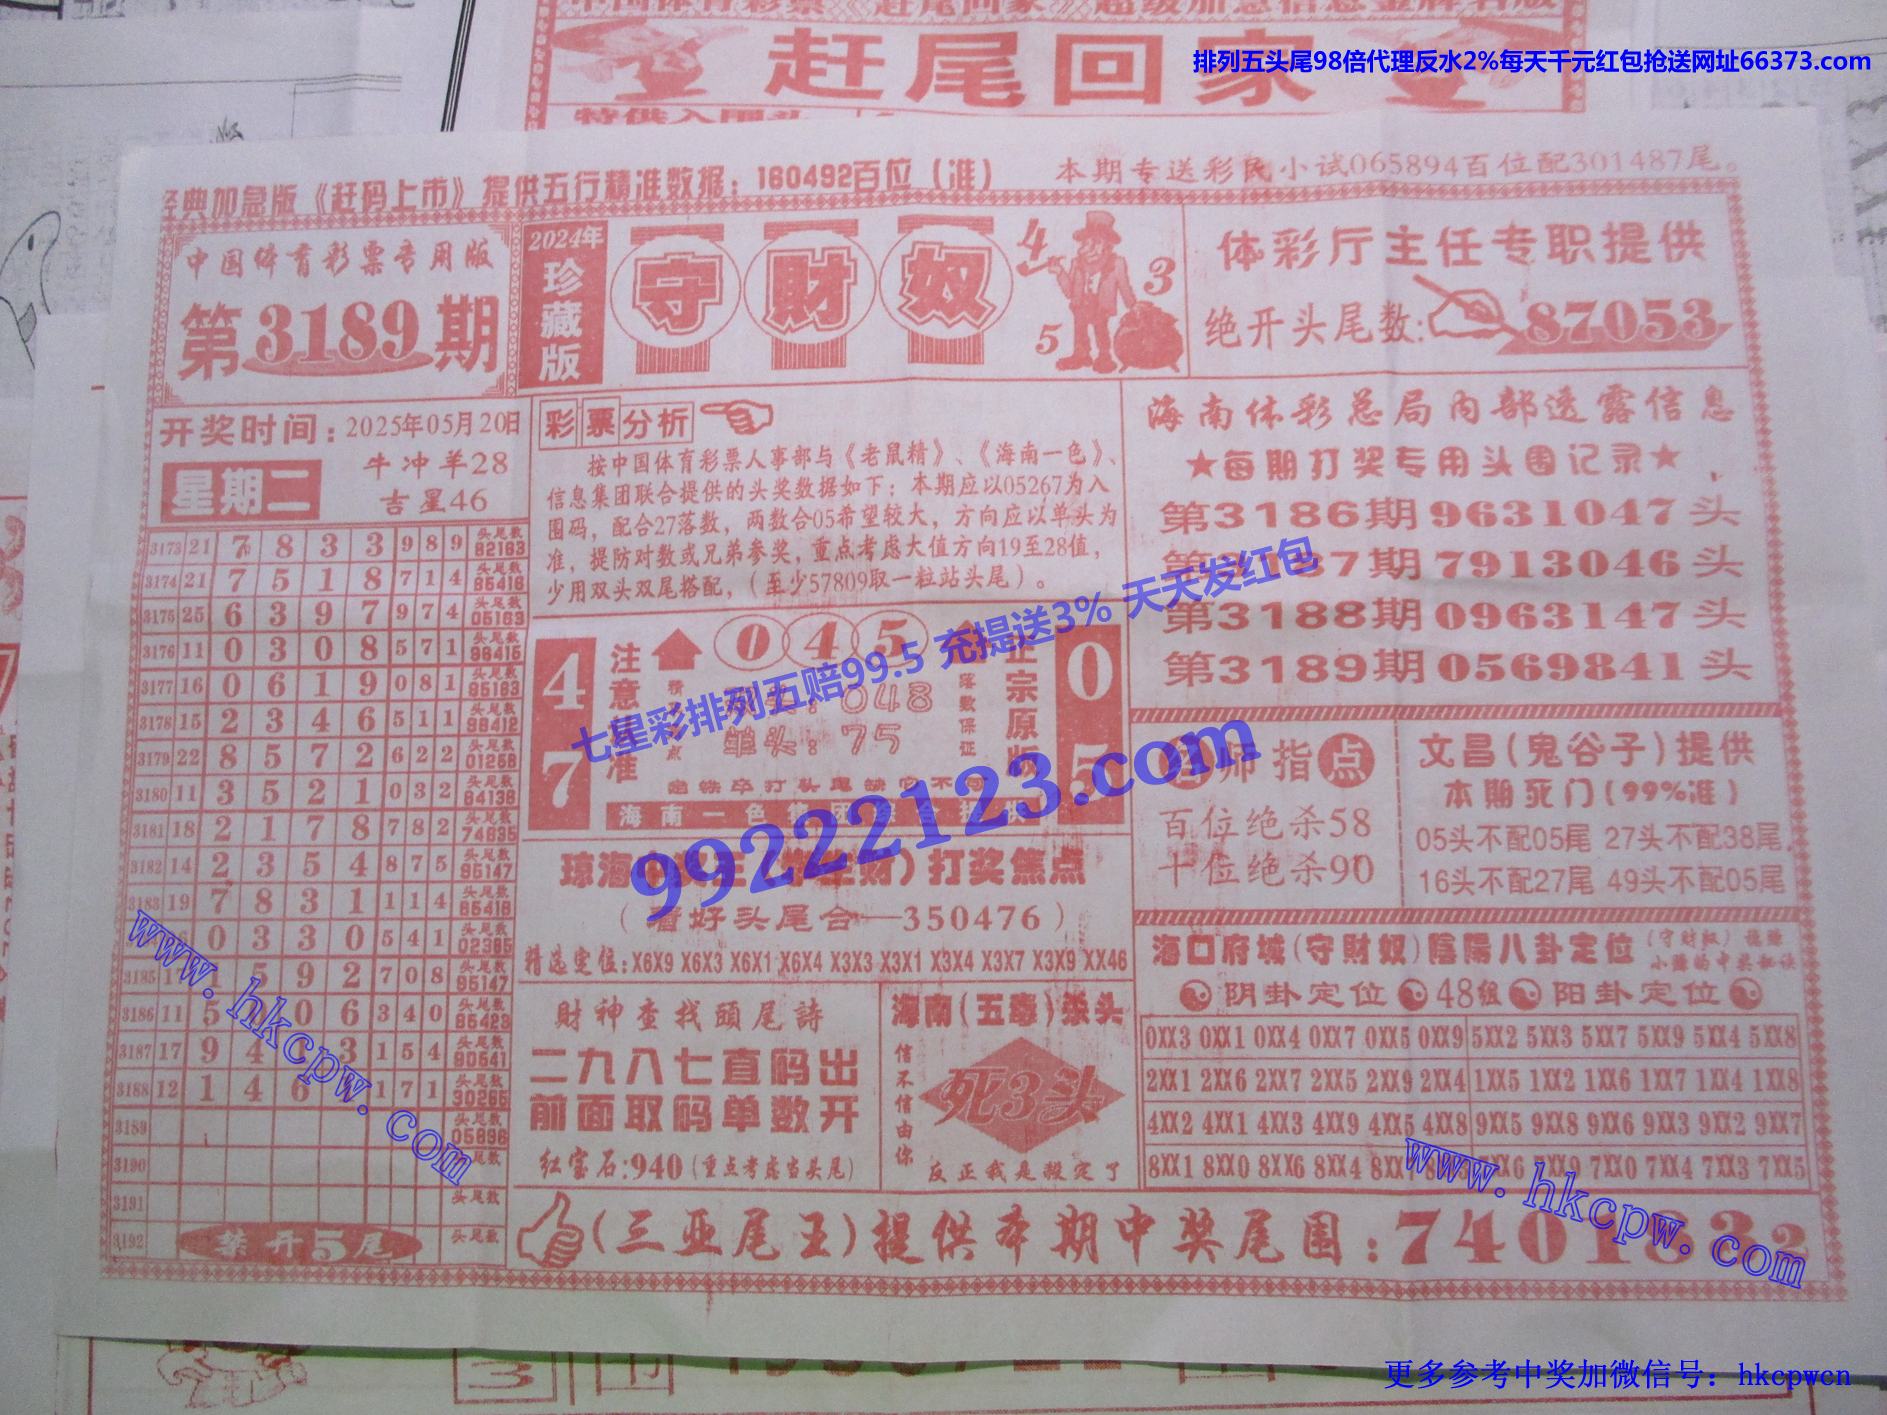 赶尾回家
排列五头尾98倍代理反水2%每天千元红包抢送网址66373.com
经典加急版《赶码上市》提供五行精准数据：160492百位（准）
本期专送彩民小试065894百位配301487尾。
中国体育彩票专用版
第3189期
2024年
珍藏版
守財奴
4
3
5
体彩厅主任专职提供
绝开头尾数:87053
开奖时间：2025年05月20日
星期二
牛冲羊28
吉星46
3173 21 7 8 3 3 9 8 9 头尾数 82163
3174 21 7 5 1 8 7 1 4 头尾数 85416
3175 25 6 3 9 7 9 7 4 头尾数 05163
3176 11 0 3 0 8 5 7 1 头尾数 98415
3177 16 0 6 1 9 0 8 1 头尾数 95163
3178 15 2 3 4 6 5 1 1 头尾数 98412
3179 22 8 5 7 2 6 2 2 头尾数 01258
3180 11 3 5 2 1 0 3 2 头尾数 84136
3181 18 2 1 7 8 7 8 2 头尾数 74635
3182 14 2 3 5 4 8 7 5 头尾数 95147
3183 19 7 8 3 1 1 1 4 头尾数 65418
0 3 3 0 5 4 1 头尾数 02385
3185 5 9 2 7 0 8 头尾数 95147
3186 11 5 0 6 3 4 0 头尾数 85423
3187 17 9 4 3 1 5 4 头尾数 80541
3188 12 1 4 6 1 7 1 头尾数 30265
3189 头尾数 05896
3190 尾数
3191 头尾数
3192 禁开5尾 头尾数
彩票分析
按中国体育彩票人事部与《老鼠精》、《海南一色》、
信息集团联合提供的头奖数据如下：本期应以05267为入
围码，配合27落数，两数合05希望较大，方向应以单头为
准，提防对数或兄弟参奖，重点考虑大值方向19至28值，
少用双头双尾搭配，（至少57809取一粒站头尾）。
47
注意
准
0 4 5
048
单头：75
落数保证
正宗原版
05
海南一色集团
海南体彩总局内部透露信息
★每期打奖专用头围记录★
第3186期9631047头
第3187期7913046头
第3188期0963147头
第3189期0569841头
师指点
百位绝杀58
十位绝杀90
文昌（鬼谷子）提供
本期死门（99%准）
05头不配05尾 27头不配38尾
16头不配27尾 49头不配05尾
打奖焦点
（看好头尾合—350476）
精选定位：X6X9 X6X3 X6X1 X6X4 X3X3 X3X1 X3X4 X3X7 X3X9 XX46
財神查找頭尾詩
二九八七直码出
前面取码单数开
红宝石:940（重点考虑当头尾）
海南（五毒）杀头
信不信由你
死3头
反正我是殺定了
海口府城（守財奴）陰陽八卦定位
阴卦定位 48组 阳卦定位
0XX3 0XX1 0XX4 0XX7 0XX5 0XX9 5XX2 5XX3 5XX7 5XX9 5XX4 5XX8
2XX1 2XX6 2XX7 2XX5 2XX9 2XX4 1XX5 1XX2 1XX6 1XX7 1XX4 1XX8
4XX2 4XX1 4XX3 4XX9 4XX5 4XX8 9XX5 9XX8 9XX6 9XX3 9XX2 9XX7
8XX1 8XX0 8XX6 8XX4 7XX0 7XX4 7XX3 7XX5
（三亚尾王）提供本期中奖尾围：740183
七星彩排列五赔99.5 充提送3% 天天发红包
99222123.com
www.hkcpw.com
www.hkcpw.com
更多参考中奖加微信号：hkcpwcn